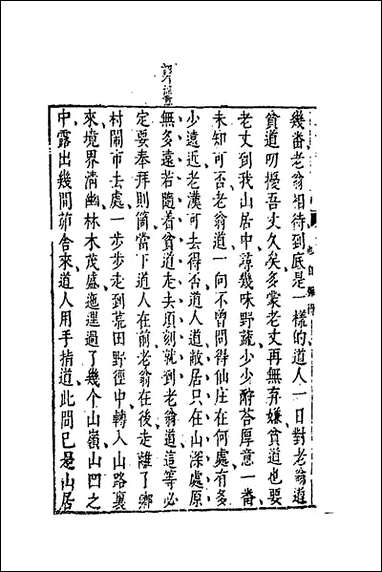 幾番老翁相待到底是一樣的道人一日對老翁道
貧道叨擾吾丈久矣多蒙老丈再無弃嫌貧道也要
老丈到我山居中諒幾味野蔬少少酧荅厚意一番
未知可否老翁道一向不曾問得仙庄在何處有多
少遠近老漢可去得否道人道敝居只在山深處原
無多遠若隨着貧道走去頃刻就到老翁道這等必
定要奉拜則箇當下道人在前老翁在後走離了鄉
村閙市去處一步步走到荒田野徑中轉入山路裏
來境界清幽林木茂盛迤邐過了幾个山嶺山凹之
中露出幾間茆舎來道人用手指道此間已是山居